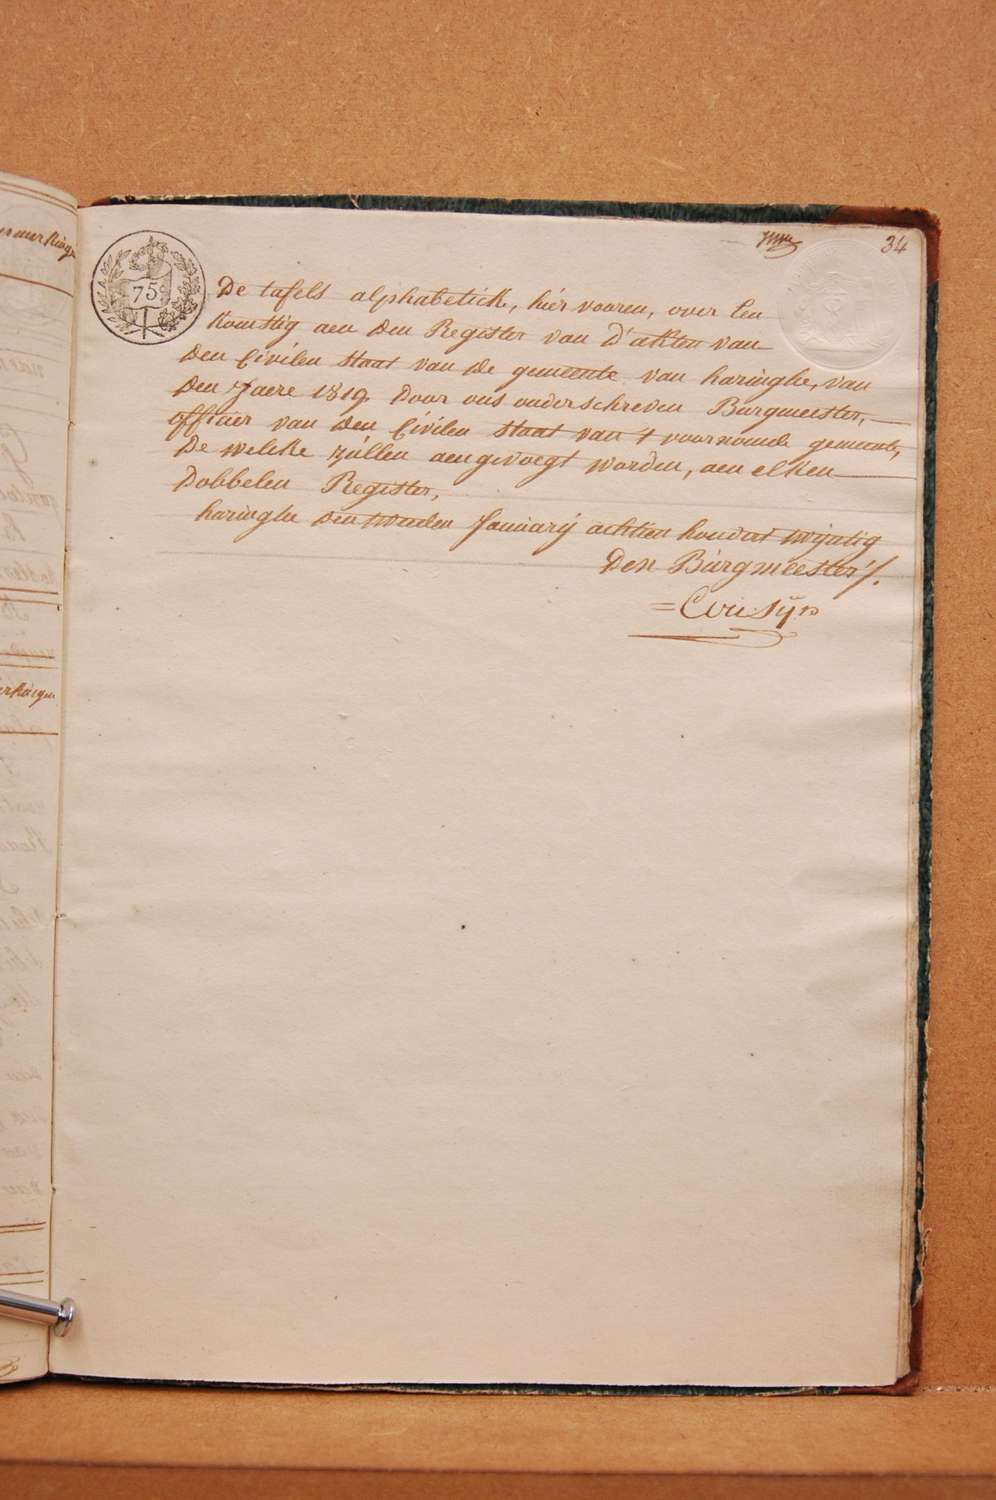 34
75
De tafels alphabetick, hier vooren, over een
komstig aen den Register van d'akten van
den Civilen Staat van de gemeente van haringhe, van
den Jaere 1819. door ons onderschreven Burgmeester,
officier van den Civilen Staat van 't voornoemde gemeente,
De welcke zullen aengevoegt worden, aen elken
Dobbelen Register,
haringhe den tweeden January achtien hondert twijntig
Den Burgmeester